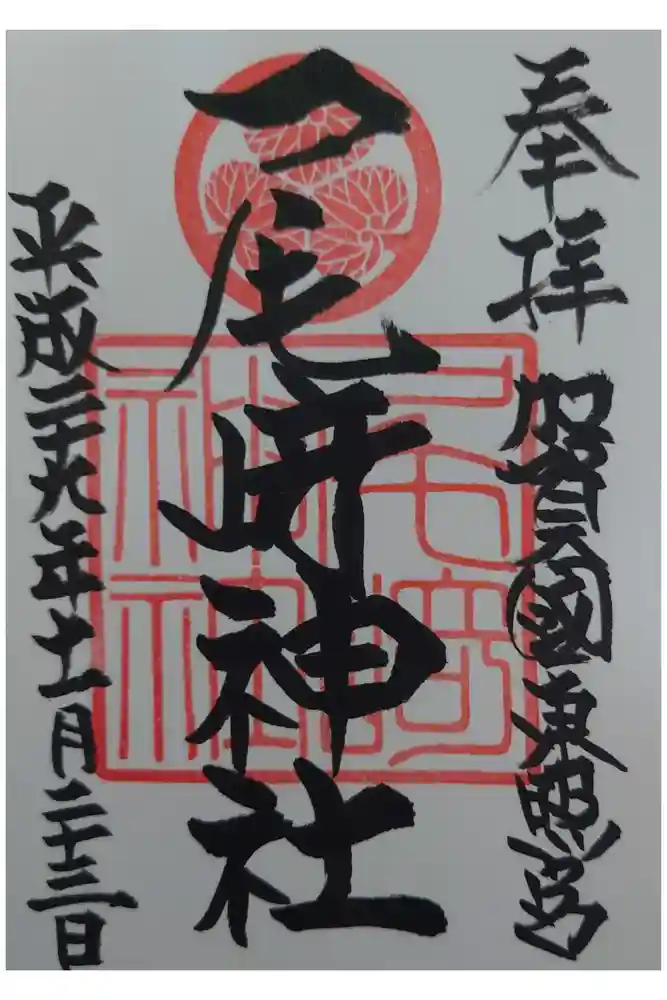 奉拝 加賀國東照宮
尾崎神社
平成二十九年十一月二十三日
尾崎
神社